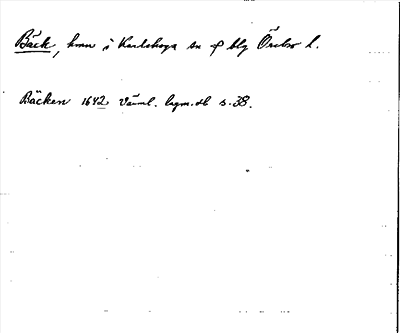 Bäck, hmn i Karlskoga sn o blg Örebro l.
Bäcken 1642 Värml. lagm.db s. 38.